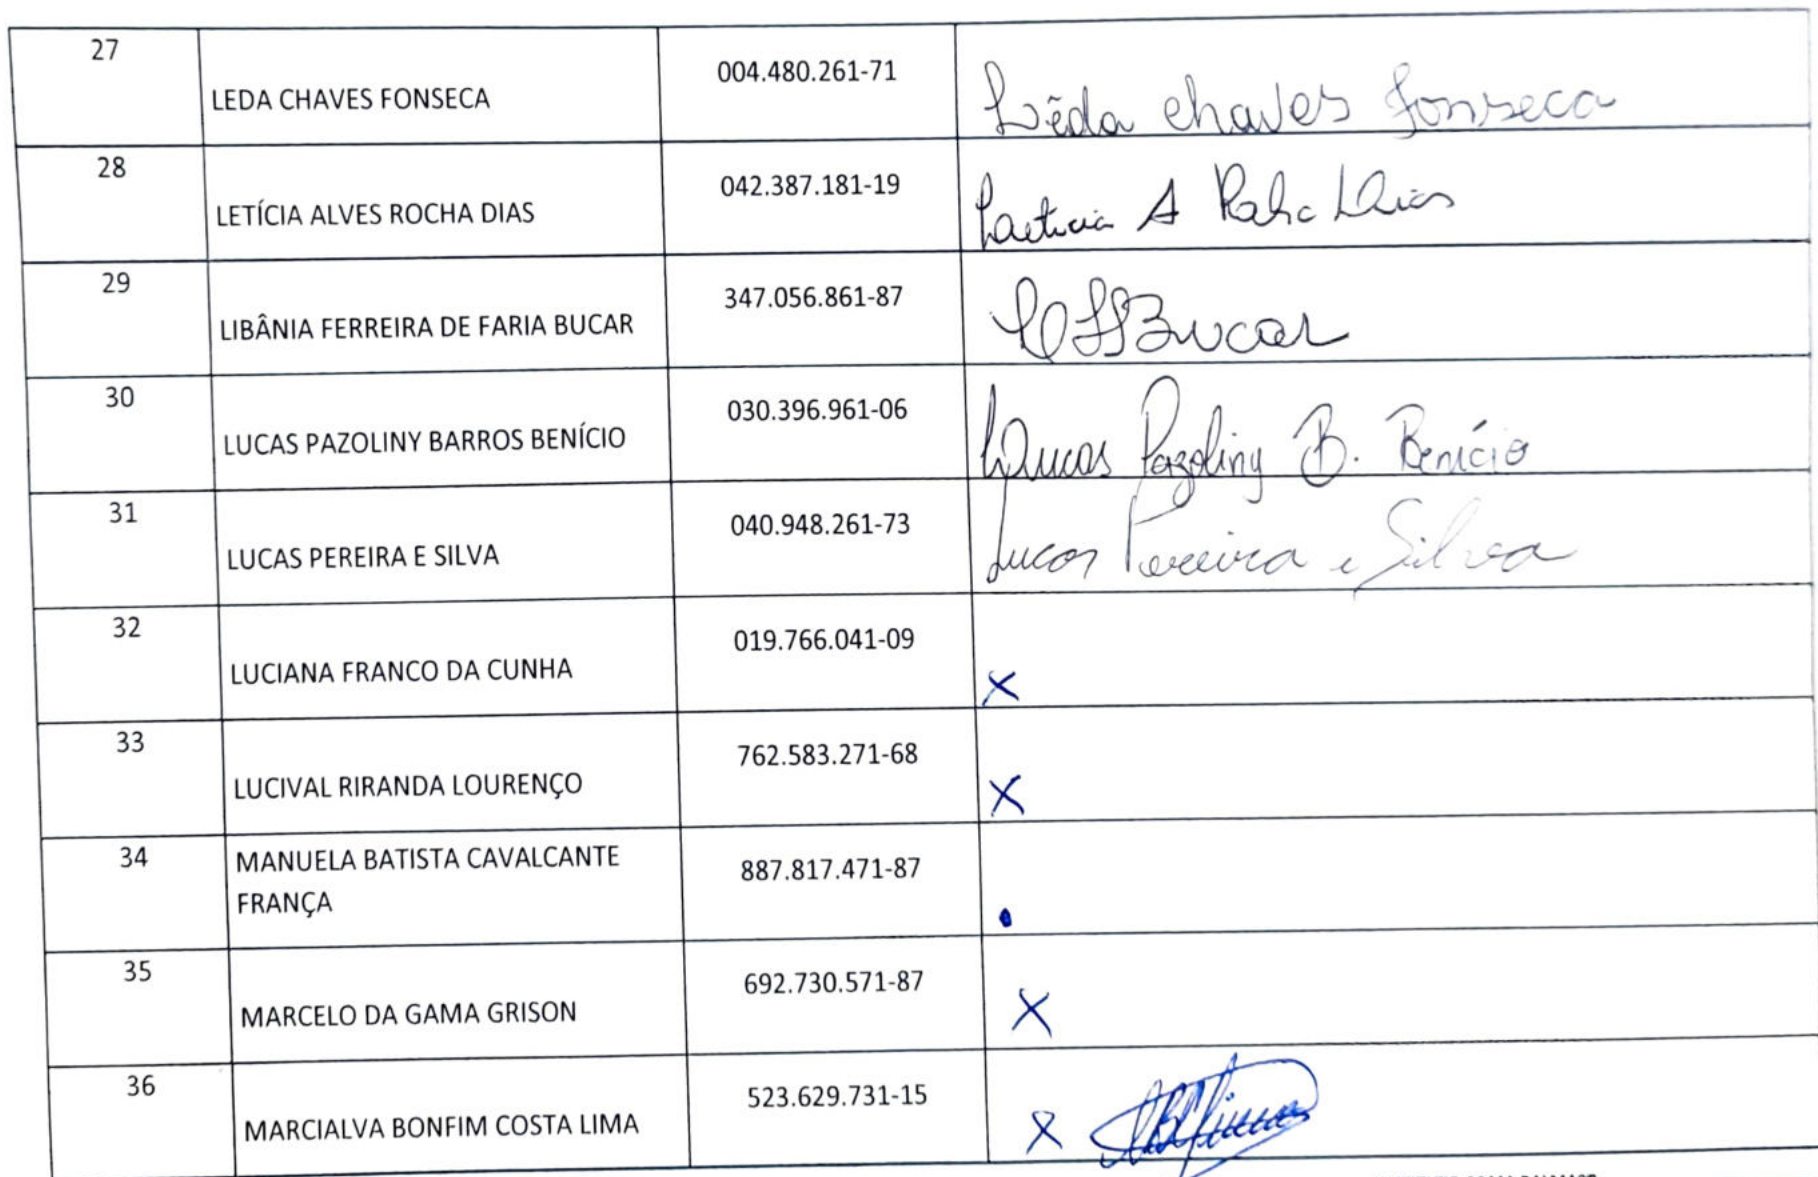 27
LEDA CHAVES FONSECA
004.480.261-71
Lêda Chaves Fonseca
28
LETÍCIA ALVES ROCHA DIAS
042.387.181-19
Laeticia A Rocha Dias
29
LIBÂNIA FERREIRA DE FARIA BUCAR
347.056.861-87
LFFBucar
30
LUCAS PAZOLINY BARROS BENÍCIO
030.396.961-06
Lucas Pazoliny B. Benício
31
LUCAS PEREIRA E SILVA
040.948.261-73
Lucas Pereira e Silva
32
LUCIANA FRANCO DA CUNHA
019.766.041-09
X
33
LUCIVAL RIRANDA LOURENÇO
762.583.271-68
X
34
MANUELA BATISTA CAVALCANTE
FRANÇA
887.817.471-87
35
MARCELO DA GAMA GRISON
692.730.571-87
X
36
MARCIALVA BONFIM COSTA LIMA
523.629.731-15
X